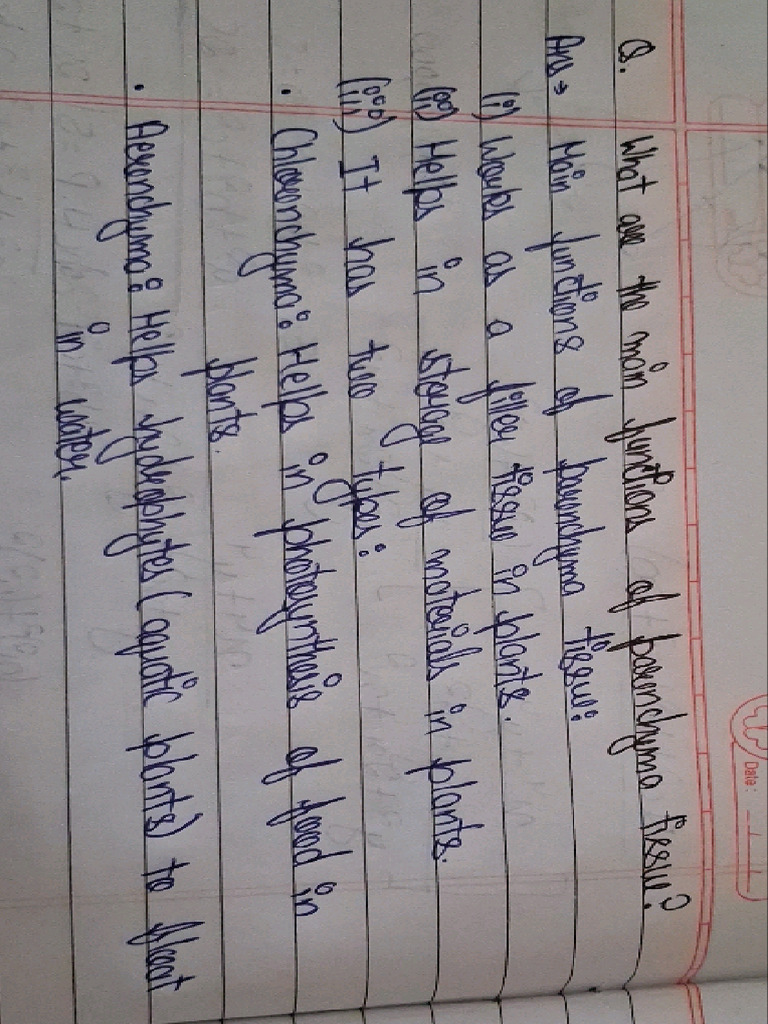 Date:
Q. What are the main functions of parenchyma tissue?
Ans → Main functions of parenchyma tissue:
(i) Works as a filler tissue in plants.
(ii) Helps in storage of materials in plants.
(iii) It has two types:
• Chlorenchyma: Helps in photosynthesis of food in
plants.
• Aerenchyma: Helps hydrophytes (aquatic plants) to float
in water.